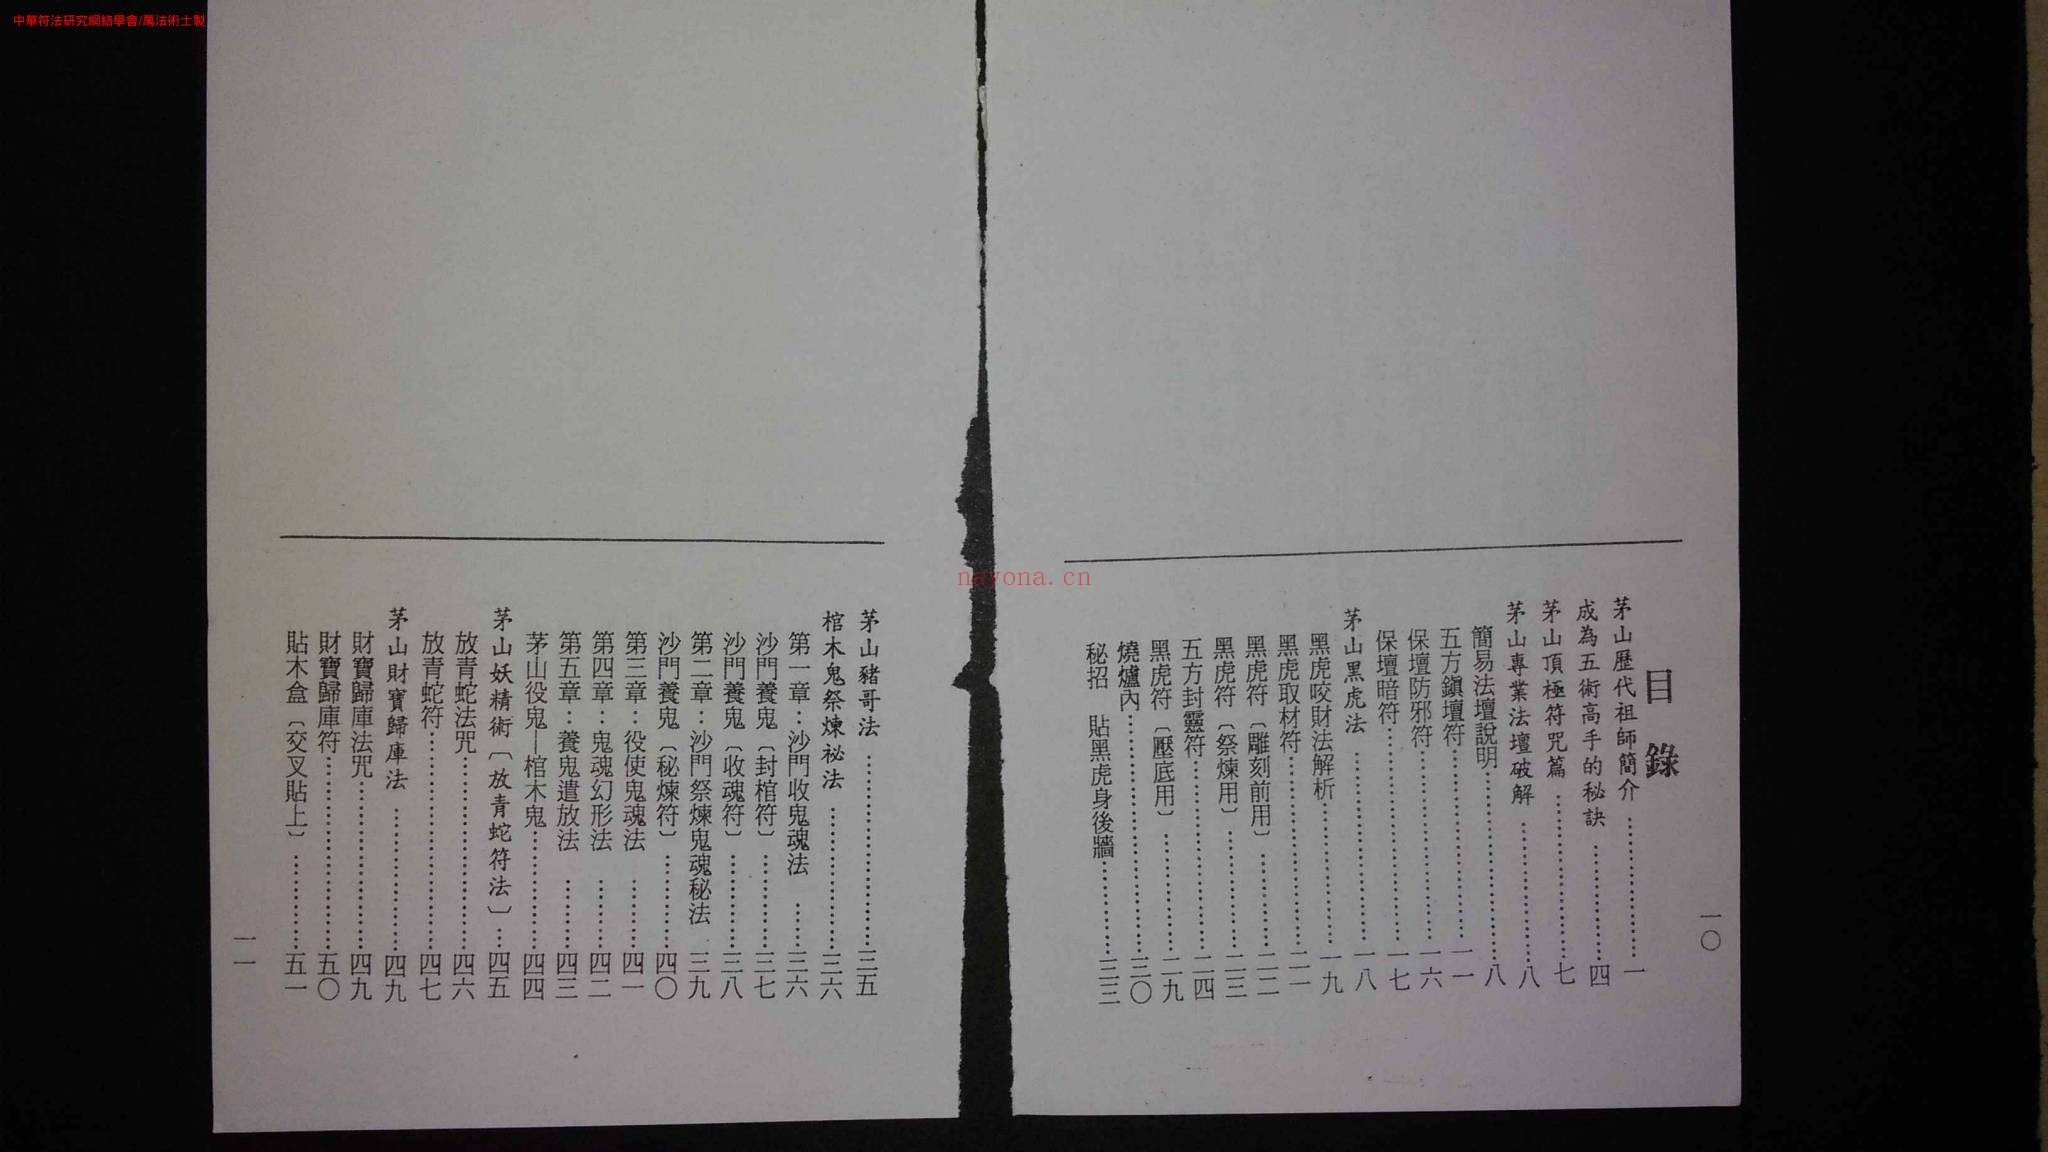 中華符法研究網絡學會/萬法術士製
nayona.cn
一〇
目錄
茅山歷代祖師簡介……………一
成為五術高手的秘訣……………四
茅山頂極符咒篇……………七
茅山專業法壇破解……………八
簡易法壇說明……………八
五方鎮壇符……………一一
保壇防邪符……………一六
保壇暗符……………一七
茅山黑虎法……………一八
黑虎咬財法解析……………一九
黑虎取材符……………二一
黑虎符〔雕刻前用〕……………二二
黑虎符〔祭煉用〕……………二三
五方封靈符……………二四
黑虎符〔壓底用〕……………二九
燒爐內……………三〇
秘招 貼黑虎身後牆……………三三
茅山豬哥法……………三五
棺木鬼祭煉祕法……………三六
第一章：沙門收鬼魂法……………三六
沙門養鬼〔封棺符〕……………三七
沙門養鬼〔收魂符〕……………三八
第二章：沙門祭煉鬼魂秘法…三九
沙門養鬼〔秘煉符〕……………四〇
第三章：役使鬼魂法……………四一
第四章：鬼魂幻形法……………四二
第五章：養鬼遣放法……………四三
茅山役鬼—棺木鬼……………四四
茅山妖精術〔放青蛇符法〕…四五
放青蛇法咒……………四六
放青蛇符……………四七
茅山財寶歸庫法……………四九
財寶歸庫法咒……………四九
財寶歸庫符……………五〇
貼木盒〔交叉貼上〕……………五一
一一